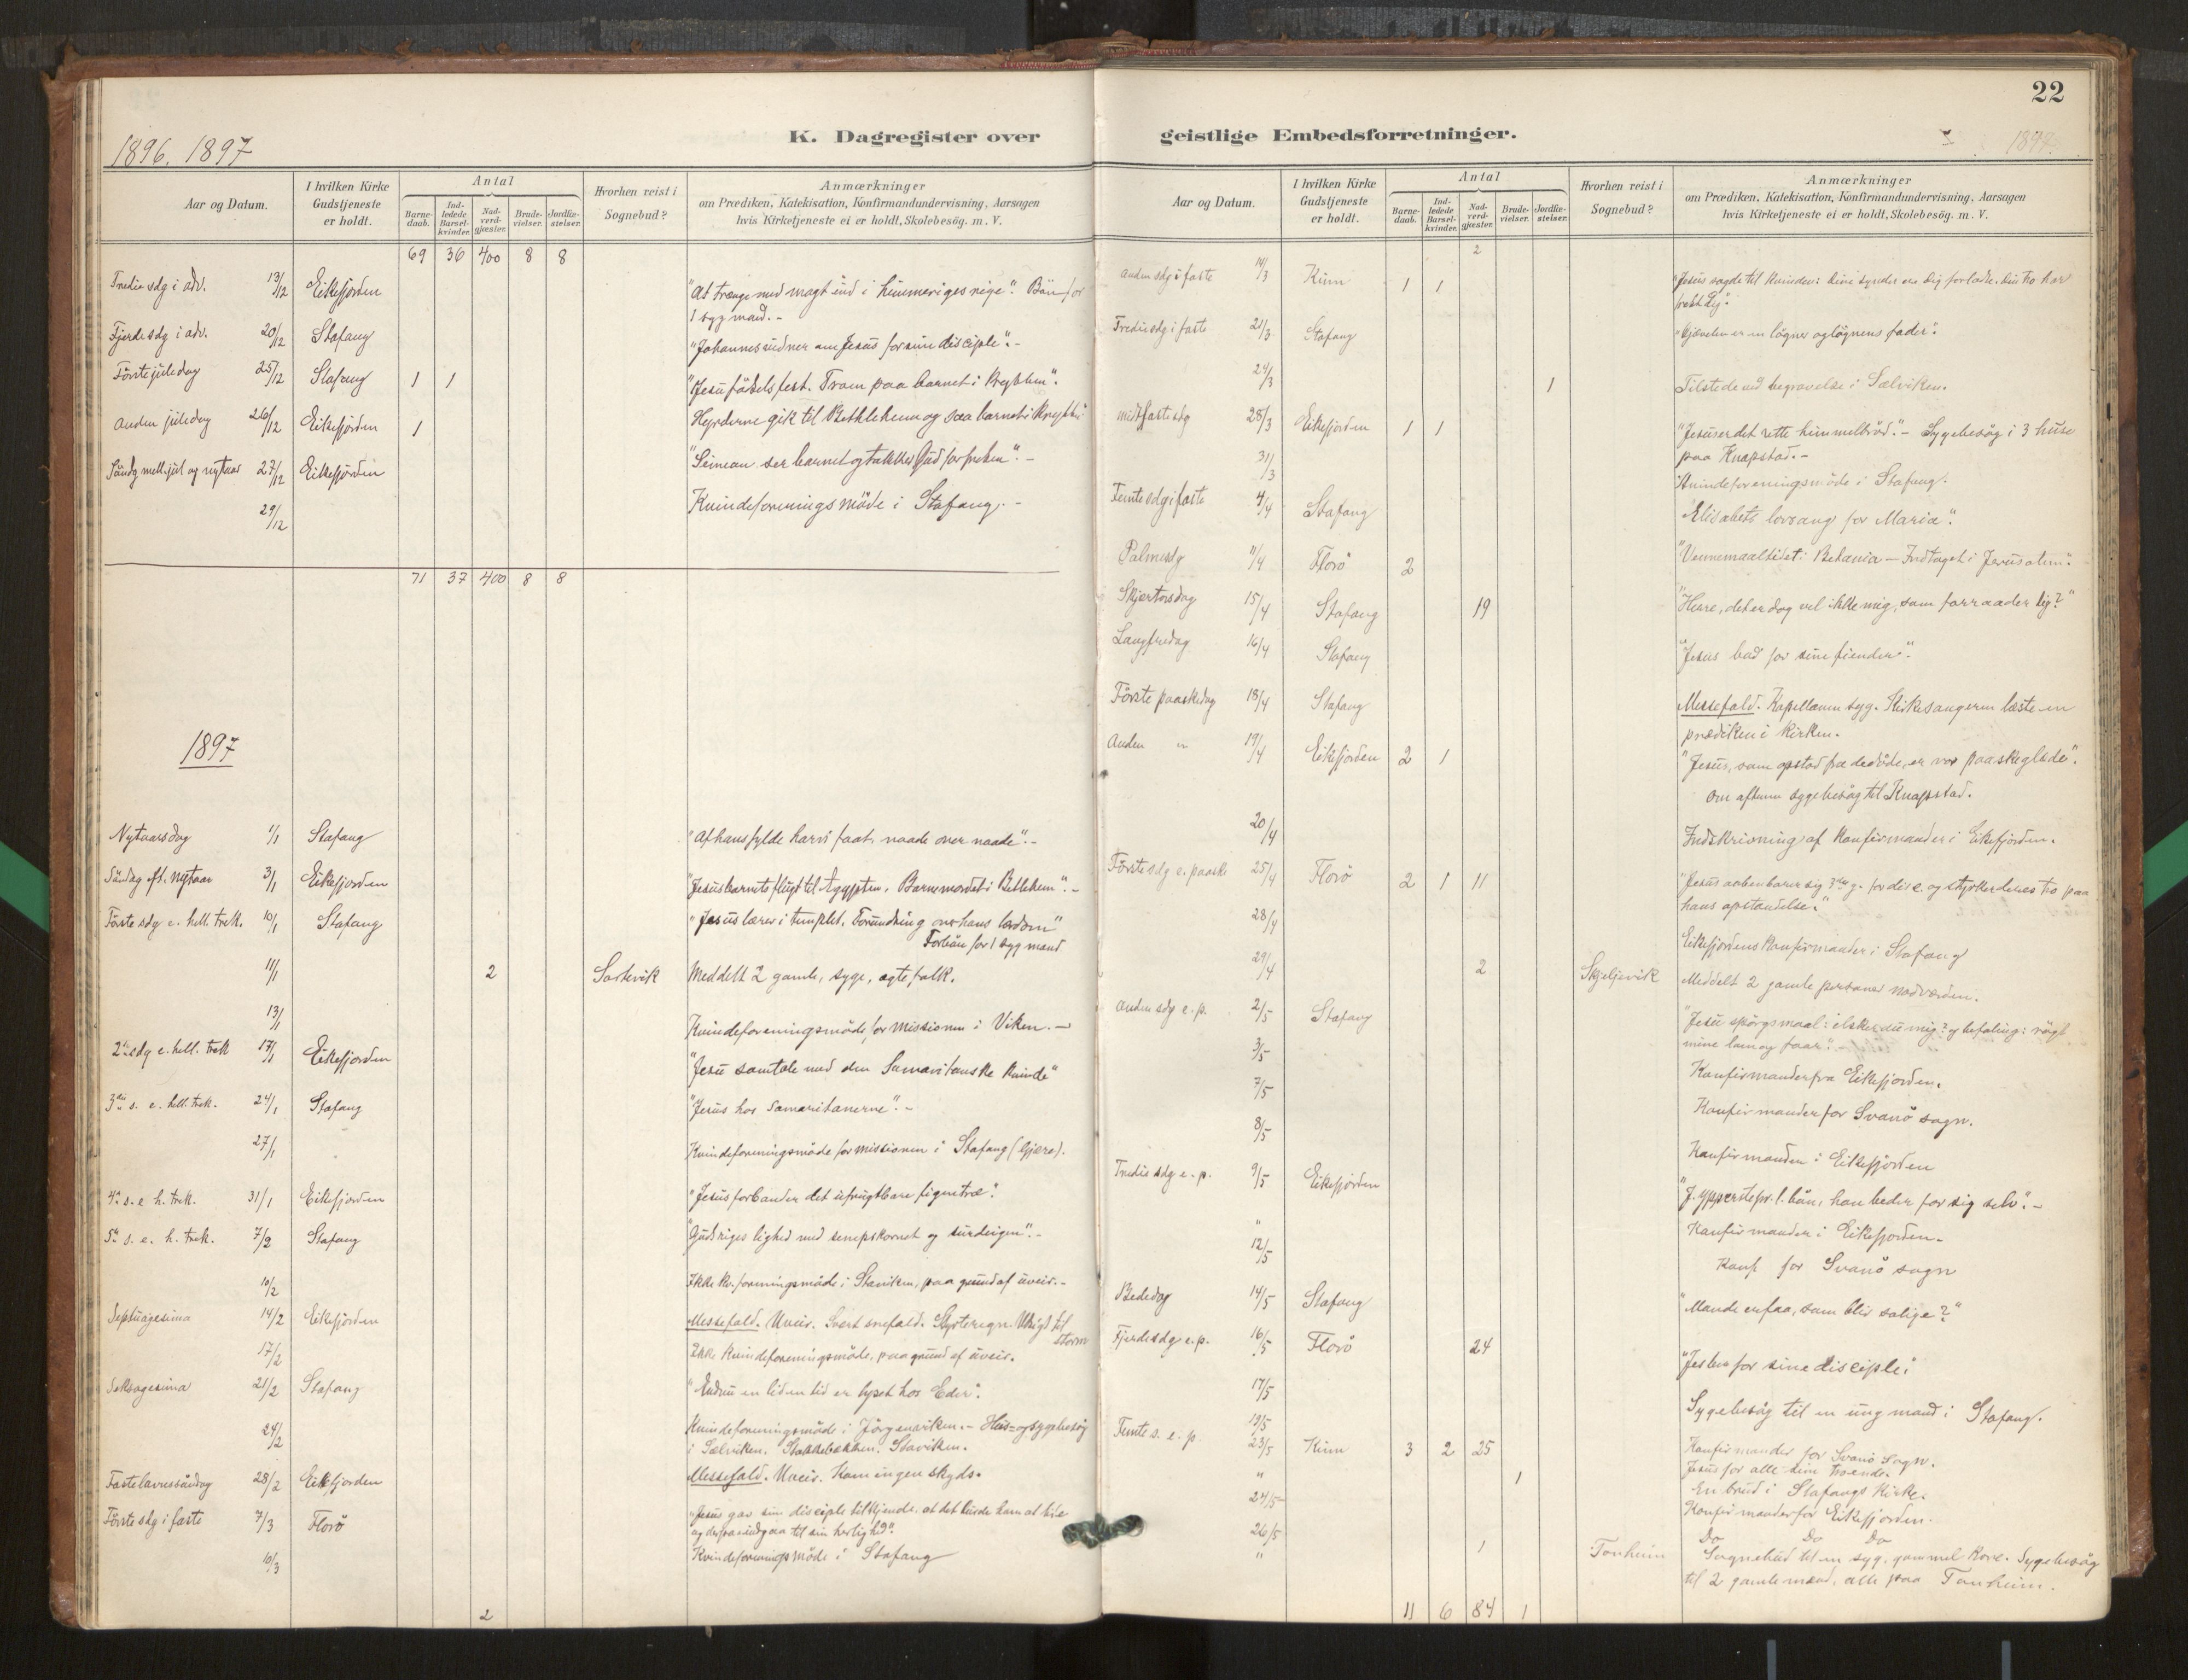 22
K. Dagregister over
geistlige Embedsforretninger.
1896. 1897
1897.
Aar og Datum.
I hvilken Kirke
Gudstjeneste
er holdt.
Antal
Barne-
daab.
Ind-
ledede
Barsel-
kvinder.
Nad-
verd-
gjæster.
Brude-
vielser.
Jordfæ-
stelser.
Hvorhen reist i
Sognebud?
Anmærkninger
om Prædiken, Katekisation, Konfirmandundervisning, Aarsagen
hvis Kirketjeneste ei er holdt, Skolebesög. m. V.
69 36 400 8 8
Tredie sdg i adv. 13/12 Eikefjorden "At trænge med magt ind i himmeriges rige". Bön for
1 syg mand.-
Fjerde sdg i adv. 20/12 Stafang "Johannes vidner om Jesus for sine disciple".-
Förste juledag 25/12 Stafang 1 1 "Jesu födselsfest. Troen paa barnet i krybben".
Anden juledag 26/12 Eikefjorden 1 Hyrderne gik til Bethlehem og saa barnet i krybben
Söndg mell. jul og nytaar 27/12 Eikefjorden "Simeon ser barnet og takker Gud for freden".-
29/12 Kvindeforeningsmöde i Stafang.-
71 37 400 8 8
1897
Nytaarsdag 1/1 Stafang "Af hans fylde har vi faat, naade over naade".-
Söndag eft. nytaar 3/1 Eikefjorden "Jesusbarnets flugt til Ægypten. Barnemordet i Betlehem".-
Förste sdg e. hell. trek. 10/1 Stafang "Jesus lærer i templet. Forundring over hans lærdom"
Forbön for 1 syg mand
11/1 2 Sortevik Meddelt 2 gamle, syge, ægtefolk.
13/1 Kvindeforeningsmöde for missionen i Viken.-
2den sdg e. hell. trek 17/1 Eikefjorden "Jesu samtale med den Samaritanske kvinde"
3die s. e. hell. trek. 24/1 Stafang "Jesus hos Samaritanerne".-
27/1 Kvindeforeningsmöde for missionen i Stafang (Gjære).
4de s. e h. trek. 31/1 Eikefjorden "Jesus forbander det ufrugtbare figentræ".
5te s. e. h. trek. 7/2 Stafang "Guds riges lighed med senepskornet og surdeigen".-
10/2 Ikke kv.foreningsmöde i Staviken, paa grund af uveir.-
Septuagesima 14/2 Eikefjorden Messefald. Uveir. Svert snefald. Styrteregn.
storm
17/2 Ikke kvindeforeningsmöde, paa grund af uveir.
Seksagesima 21/2 Stafang "Endnu en liden tid er lyset hos Eder".
24/2 Kvindeforeningsmöde i Jörgenviken.- Hus- og sygebesög
i Sælviken. Stakkebakken. Staviken.
Fastelavnssöndag 28/2 Eikefjorden Messefald. Uveir. Kom ingen skyds.
Förste sdg i faste 7/3 Florö "Jesus gav sine disciple tilkjende, at det burde ham at lide
og derpaa indgaa til sin herlighed".
10/3 Kvindeforeningsmöde i Stafang
2
Aar og Datum.
I hvilken Kirke
Gudstjeneste
er holdt.
Antal
Barne-
daab.
Ind-
ledede
Barsel-
kvinder.
Nad-
verd-
gjæster.
Brude-
vielser.
Jordfæ-
stelser.
Hvorhen reist i
Sognebud?
Anmærkninger
om Prædiken, Katekisation, Konfirmandundervisning, Aarsagen
hvis Kirketjeneste ei er holdt, Skolebesög. m. V.
2
Anden sdg i faste 14/3 Kinn 1 1 "Jesus sagde til kvinden: dine synder ere dig forladte. din tro har
frelst dig".
Tredie sdg i faste 21/3 Stafang "Djævelen er en lögner og lögnens fader".
24/3 1 Tilstede ved begravelse i Sælviken.
Midfastesdg 28/3 Eikefjorden 1 1 "Jesus er det rette himmelbröd".- Sygebesög i 3 huse
paa Knapstad.-
31/3 Kvindeforeningsmöde i Stafang.
Femte sdg i faste 4/4 Stafang "Elisabets lovsang for Maria".
Palmesdg 11/4 Florö 2 "Vennemaaltidet i Betania - Indtoget i Jerusalem".
Skjærtorsdag 15/4 Stafang 19 "Herre, det er dog vel ikke mig, som forraader dig?"
Langfredag 16/4 Stafang "Jesus bad for sine fiender".
Förste paaskedag 18/4 Stafang Messefald. Kapellanen syg. Kirkesangeren læste en
prædiken i kirken.
Anden " 19/4 Eikefjorden 2 1 "Jesus, som opstod fra de döde, er vor paaskeglæde".
Om aftenen sygebesög til Knapstad.
20/4 Indskrivning af konfirmander i Eikefjorden.
Förste sdg e. paaske 25/4 Florö 2 1 11 "Jesus aabenbarer sig 3die g. for disc. og styrker deres tro paa
hans opstandelse."
28/4 Eikefjordens konfirmander i Stafang
29/4 2 Skjeljevik Meddelt 2 gamle personer nadverden.
Anden sdg e. p. 2/5 Stafang "Jesu spörgsmaal: elsker du mig? og befaling: vogt
mine lam og faar".
3/5 Konfirmander fra Eikefjorden.
7/5 Konfirmander for Svanö sogn.
8/5 Konfirmander i Eikefjorden
Tredie sdg e. p. 9/5 Eikefjorden "J. ypperstepr.l. bön, han beder for sig selv".-
" Konfirmander i Eikefjorden.
12/5 Konf for Svanö sogn
Bededag 14/5 Stafang "Mon de er faa, som blir salige?"
Fjerde sdg e. p. 16/5 Florö 24 "Jes ber for sine disciple.
17/5 Sygebesög til en ung mand i Stafang.
19/5 Konfirmander for Svanö Sogn.
Femte s. e. p. 23/5 Kinn 3 2 25 Jesus for alle sine troende.
" 1 En brud i Stafangs Kirke.
24/5 Konfirmander for Eikefjorden.
26/5 Do Do Do
" 1 Tonheim Sognebud til en syg, gammel kone. Sygebesög
til 2 gamle mænd, alle paa Tonheim.
11 6 84 1